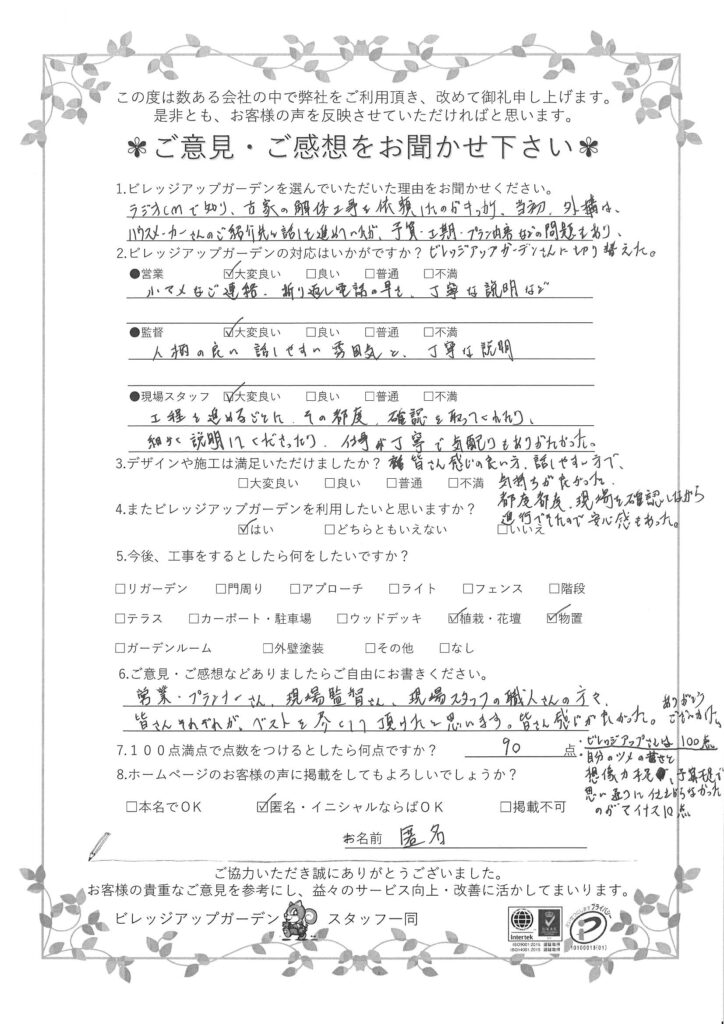 この度は数ある会社の中で弊社をご利用頂き、改めて御礼申し上げます。
是非とも、お客様の声を反映させていただければと思います。
ご意見・ご感想をお聞かせ下さい
1.ビレッジアップガーデンを選んでいただいた理由をお聞かせください。
ラジオCMで知り、古家の解体工事を依頼したのがきっかけ、当初、外構は、
ハウスメーカーさんのご紹介先と話しを進めていたが、予算・工期・プラン内容などの問題もあり、
2.ビレッジアップガーデンの対応はいかがですか? ビレッジアップガーデンさんに切り替えた。
●営業 ☑大変良い □良い □普通 □不満
小マメなご連絡、折り返し電話の早さ、丁寧な説明など
●監督 ☑大変良い □良い □普通 □不満
人柄の良い 話しやすい雰囲気と、丁寧な説明
●現場スタッフ ☑大変良い □良い □普通 □不満
工程を進めるごとに、その都度、確認を取ってくれたり、
細かく説明してくださったり、仕事が丁寧で気配りもありがたかった。
3.デザインや施工は満足いただけましたか? 皆さん感じの良い方、話しやすい方で、
□大変良い □良い □普通 □不満 気持ちが良かった。
都度都度、現場を確認しながら
4.またビレッジアップガーデンを利用したいと思いますか? 進行できたので安心感もあった。
☑はい □どちらともいえない □いいえ
5.今後、工事をするとしたら何をしたいですか?
□リガーデン □門周り □アプローチ □ライト □フェンス □階段
□テラス □カーポート・駐車場 □ウッドデッキ ☑植栽・花壇 ☑物置
□ガーデンルーム □外壁塗装 □その他 □なし
6.ご意見・ご感想などありましたらご自由にお書きください。
営業・プランナーさん、現場監督さん、現場スタッフの職人さんの方々、
皆さんそれぞれが、ベストを尽くして頂けたと思います。皆さん感じが良かった。 ありがとう
ございました。
7.100点満点で点数をつけるとしたら何点ですか? 90 点
・ビレッジアップさんは100点
・自分のツメの甘さと
想像力不足、予算不足で
思い通りに仕上がらなかった
のがマイナス10点
8.ホームページのお客様の声に掲載をしてもよろしいでしょうか?
□本名でOK ☑匿名・イニシャルならばOK □掲載不可
お名前 匿名
ご協力いただき誠にありがとうございました。
お客様の貴重なご意見を参考にし、益々のサービス向上・改善に活かしてまいります。
ビレッジアップガーデン スタッフ一同
intertek
ISO9001:2015 認証取得
ISO14001:2015 認証取得
プライバシー